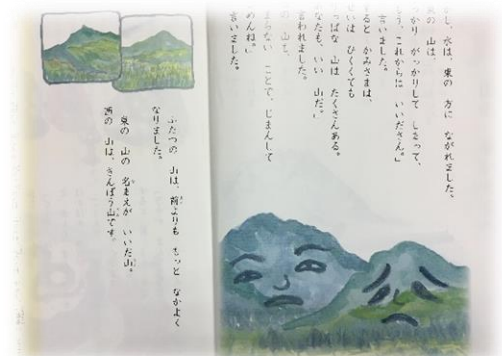 かし、水は、東の 方に ながれました、
の 山は、
っかり がっかりして しまって、
う、これからは いいださん。」
言いました。
すると かみさまは、
いは ひくくても
っぱな 山は たくさんある。
なたも、いい 山だ。」
言われました。
の 山も、
まらない ことで、じまんして
のんね。」
言いました。
ふたつの 山は、前よりも もっと なかよく
なりました。
東の 山の 名まえが いいだ山。
西の 山は、きんぽう山です。